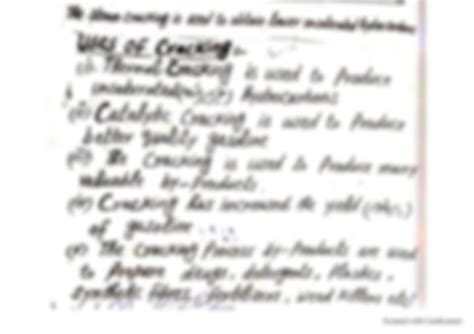 The steam cracking is used to obtain lower unsaturated hydrocarbons
Uses of Cracking:-
(i) Thermal Cracking is used to Produce
unsaturated hydrocarbons
(ii) Catalytic Cracking is used to Produce
better quality gasoline
(iii) The Cracking is used to Produce many
valuable by-Products.
(iv) Cracking has increased the yield
of gasoline.
(v) The Cracking Process by-Products are used
to Prepare drugs, detergents, Plastics,
Synthetic fibres, fertilizers, weed killers etc